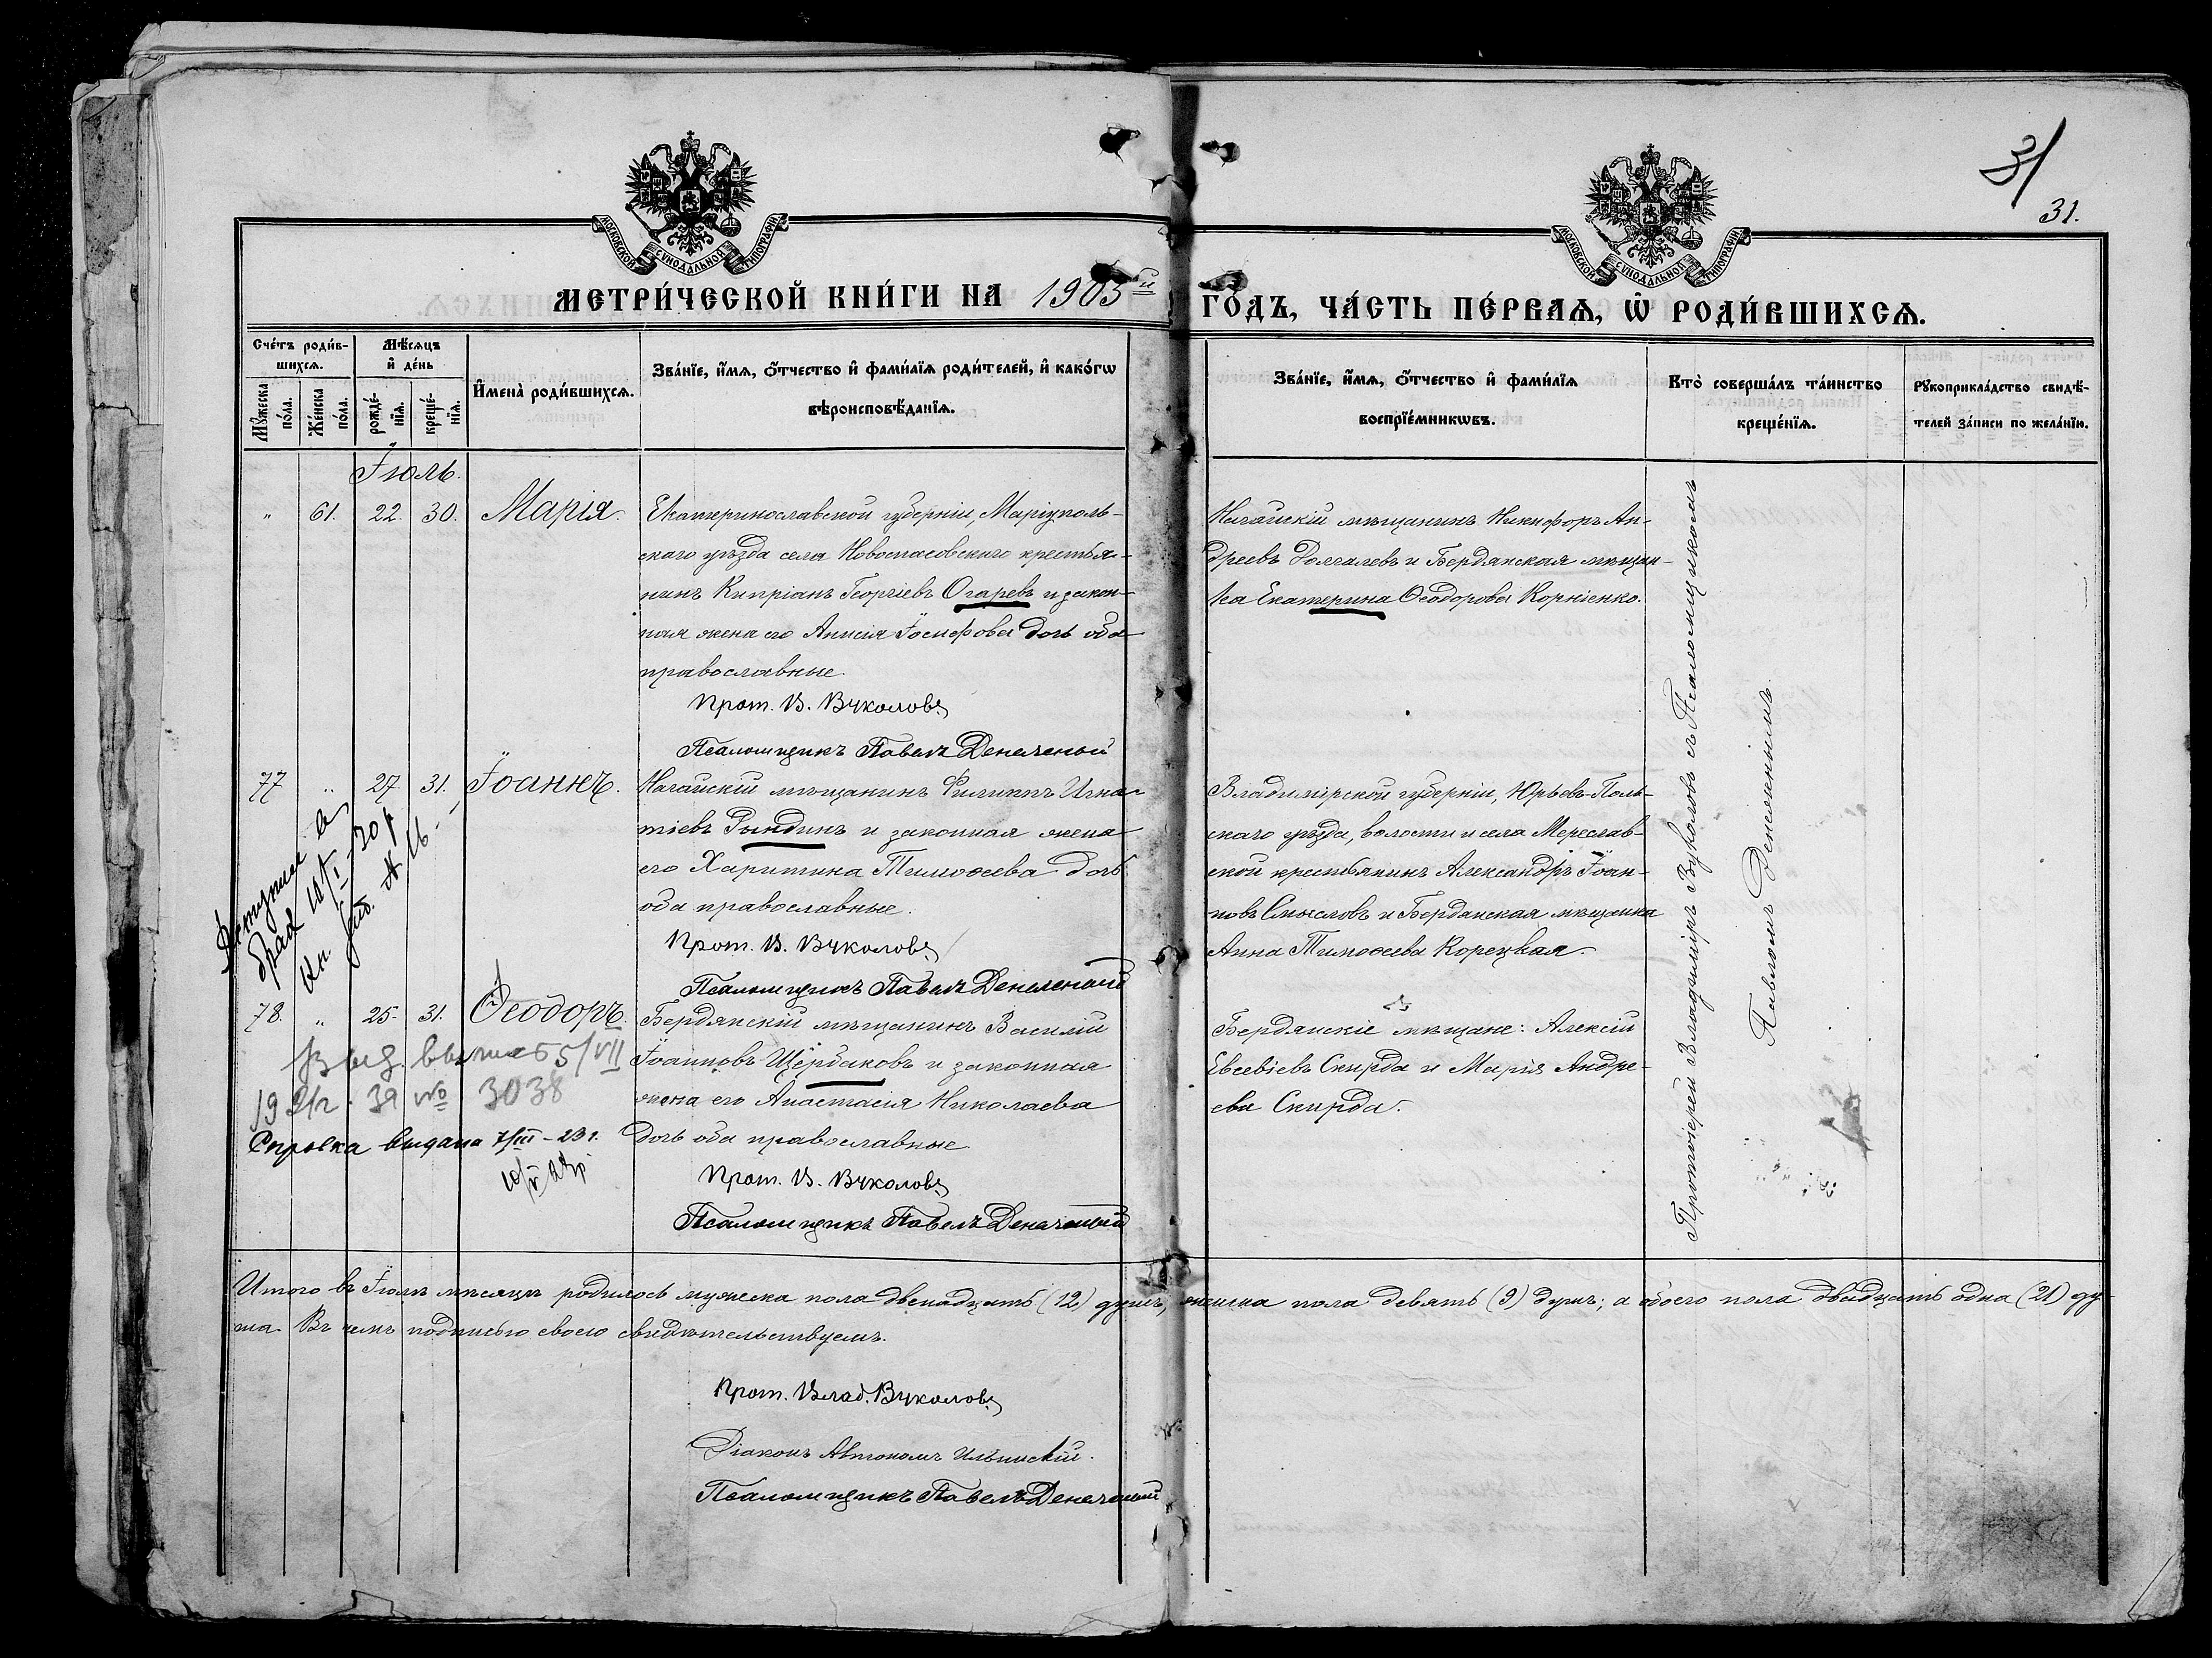 31
31.
МОСКОВСКОЙ СѴНОДАЛЬНОЙ ТИПОГРАФІИ
МОСКОВСКОЙ СѴНОДАЛЬНОЙ ТИПОГРАФІИ
МЕТРИ́ЧЕСКОЙ КНИ́ГИ НА 1903й ГО́ДЪ, ЧА́СТЬ ПЕ́РВАѦ, Ѽ РОДИ́ВШИХСѦ.
Сче́тъ роди́в-
шихсѧ.
Мꙋ́жеска по́ла.
Же́нска по́ла.
Мѣ́сѧцъ
и҆ де́нь
рожде́-нїѧ.
креще́-нїѧ.
И҆мена̀ роди́вшихсѧ.
Зва́нїе, и҆́мѧ, ѻ҆́тчество и҆ фами́лїѧ роди́телей, и҆ како́гѡ
вѣроисповѣ́данїѧ.
Зва́нїе, и҆́мѧ, ѻ҆́тчество и҆ фами́лїѧ
воспрїе́мникѡвъ.
Кто̀ соверша́лъ та́инство
креще́нїѧ.
Рꙋкоприкла́дство свидѣ́-
телей за́писи по жела́нїю.
Іюль.
" 61. 22. 30. Марія.
Екатеринославской губерніи, Маріуполь-
скаго уѣзда села Новоспасовскаго крестья-
нинъ Кипріанъ Георгіевъ Огаревъ и закон-
ная жена его Анисія Іосифова дочь оба
православные.
Прот. В. Вуколовъ
Псаломщикъ Павелъ
Ногайскій мѣщанинъ Никифоръ Ан-
дреевъ Долгалевъ и Бердянская мѣщан-
ка Екатерина Ѳеодорова Корніенко.
77 " 27. 31. Іоаннъ.
Ногайскій мѣщанинъ Филиппъ Игна-
тіевъ Рындинъ и законная жена
его Харитина Тимоѳеева дочь
оба православные.
Прот. В. Вуколовъ
Псаломщикъ Павелъ
Владимірской губерніи, Юрьевъ-Поль-
скаго уѣзда, волости и села Мереслав-
ской крестьянинъ Александръ Іоан-
новъ Смысловъ и Бердянская мѣщанка
Анна Тимоѳеева Корецкая.
брак
78. " 25. 31. Ѳеодоръ.
Бердянскій мѣщанинъ Василій
Іоанновъ Щербаковъ и законная
жена его Анастасія Николаева
дочь оба православные
Прот. В. Вуколовъ
Псаломщикъ Павелъ
Бердянскіе мѣщане: Алексій
Евсевіевъ Скирда и Марія Андре-
ева Скирда.
5/VII
39 № 3038
Справка выдана 7/III-23г.
Протоіерей Владиміръ Вуколовъ съ Псаломщикомъ
Павломъ
Итого въ Іюлѣ мѣсяцѣ родилось мужеска пола двенадцать (12) душъ, женска пола девять (9) душъ; а обоего пола двадцать одна (21) ду-
ша. Въ чемъ подписью своею свидѣтельствуемъ.
Прот. Влад. Вуколовъ
Діаконъ Автономъ Ильинскій.
Псаломщикъ Павелъ